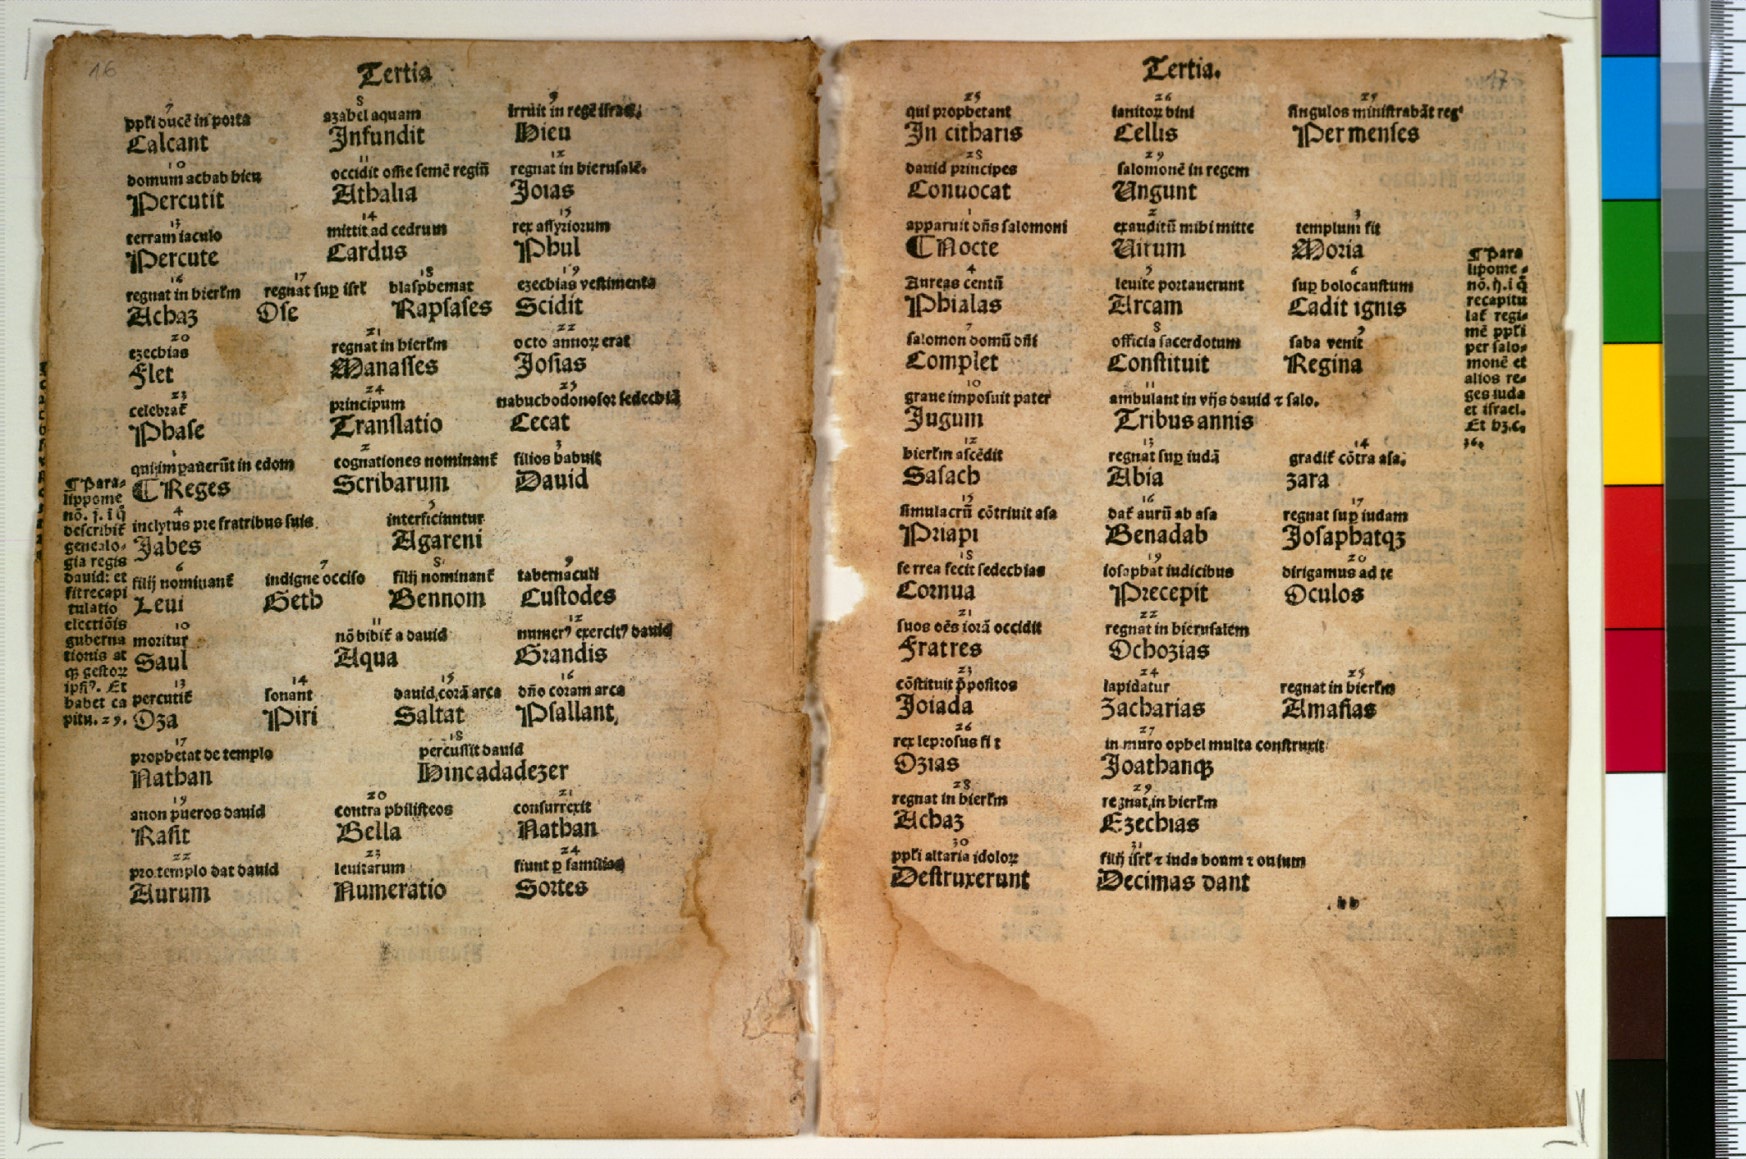 16
Tertia
7 8 9
ppľi ducē in porta azabel aquam irruit in regē israel.
Calcant Infundit Hieu
10 11 12
domum achab hieu occidit oſſie ſemē regiū regnat in hieruſalē.
Percutit Athalia Joias
13 14 15
terram iaculo mittit ad cedrum rex aſſyriorum
Percute Cardus Phul
16 17 18 19
regnat in hierľm regnat ſup iſrľ blaſphemat ezechias veſtimenta
Achaz Oſe Rapſaſes Scidit
20 21 22
ezechias regnat in hierľm octo annoꝝ erat
Flet Manaſſes Joſias
23 24 25
celebrat᷑ principum nabuchodonoſor ſedechiā
Phaſe Tranſlatio Cecat
1 2 3
qui impauerūt in edom cognationes nominant᷑ filios habuit
¶Reges Scribarum Dauid
4 5
inclytus pre fratribus ſuis interficiuntur
Jabes Agareni
6 7 8 9
filij nominant᷑ indigne occiſo filij nominant᷑ tabernaculi
Leui Geth Bennom Cuſtodes
10 11 12
moritur nō bibit᷑ a dauid numerꝰ exercitꝰ dauid
Saul Aqua Grandis
13 14 15 16
percutit᷑ ſonant dauid corā arca dn̄o coram arca
Oza Piri Saltat Pſallant
17 18
prophetat de templo percuſſit dauid
Nathan Hincadadezer
19 20 21
anon pueros dauid contra philiſteos conſurrexit
Raſit Bella Nathan
22 23 24
pro templo dat dauid leuitarum fiunt ꝑ familias
Aurum Numeratio Sortes
¶Para-
lippome
nō. j. i q̄
deſcribit᷑
genealo-
gia regis
dauid: et
fit recapi
tulatio
electiōis
guberna
tionis at
qꝫ geſtoꝝ
ipſiꝰ. Et
habet ca
pitu. 29.
17
Tertia.
25 26 27
qui prophetant ianitoꝝ bini ſingulos miniſtrabāt regꝰ
In citharis Cellis Per menſes
28 29
dauid principes ſalomonē in regem
Conuocat Ungunt
1 2 3
apparuit dn̄s ſalomoni exauditū mihi mitte templum fit
¶Nocte Uirum Moria
4 5 6
Aureas centū leuite portauerunt ſup holocauſtum
Phialas Arcam Cadit ignis
7 8 9
ſalomon domū dn̄i officia ſacerdotum ſaba venit
Complet Conſtituit Regina
10 11
graue impoſuit pater ambulant in vijs dauid ⁊ ſalo.
Jugum Tribus annis
12 13 14
hierľm aſcēdit regnat ſup iudā gradit᷑ cōtra aſa.
Saſach Abia zara
15 16 17
ſimulacrū cōtriuit aſa dat᷑ aurū ab aſa regnat ſup iudam
Priapi Benadab Joſaphatqꝫ
18 19 20
ferrea fecit ſedechias ioſaphat iudicibus dirigamus ad te
Cornua Precepit Oculos
21 22
ſuos oēs iorā occidit regnat in hieruſalem
Fratres Ochozias
23 24 25
cōſtituit p̄poſitos lapidatur regnat in hierľm
Joiada Zacharias Amaſias
26 27
rex leproſus fit in muro ophel multa conſtruxit
Ozias Joathanqꝫ
28 29
regnat in hierľm regnat in hierľm
Achaz Ezechias
30 31
ppľi altaria idoloꝝ filij iſrľ ⁊ iuda boum ⁊ ouium
Deſtruxerunt Decimas dant
¶Para
lipome-
nō. ij. i q̄
recapitu
lat᷑ regi-
mē ppľi
per ſalo-
monē et
alios re-
ges iuda
et iſrael.
Et hꝫ.c.
36.
bb